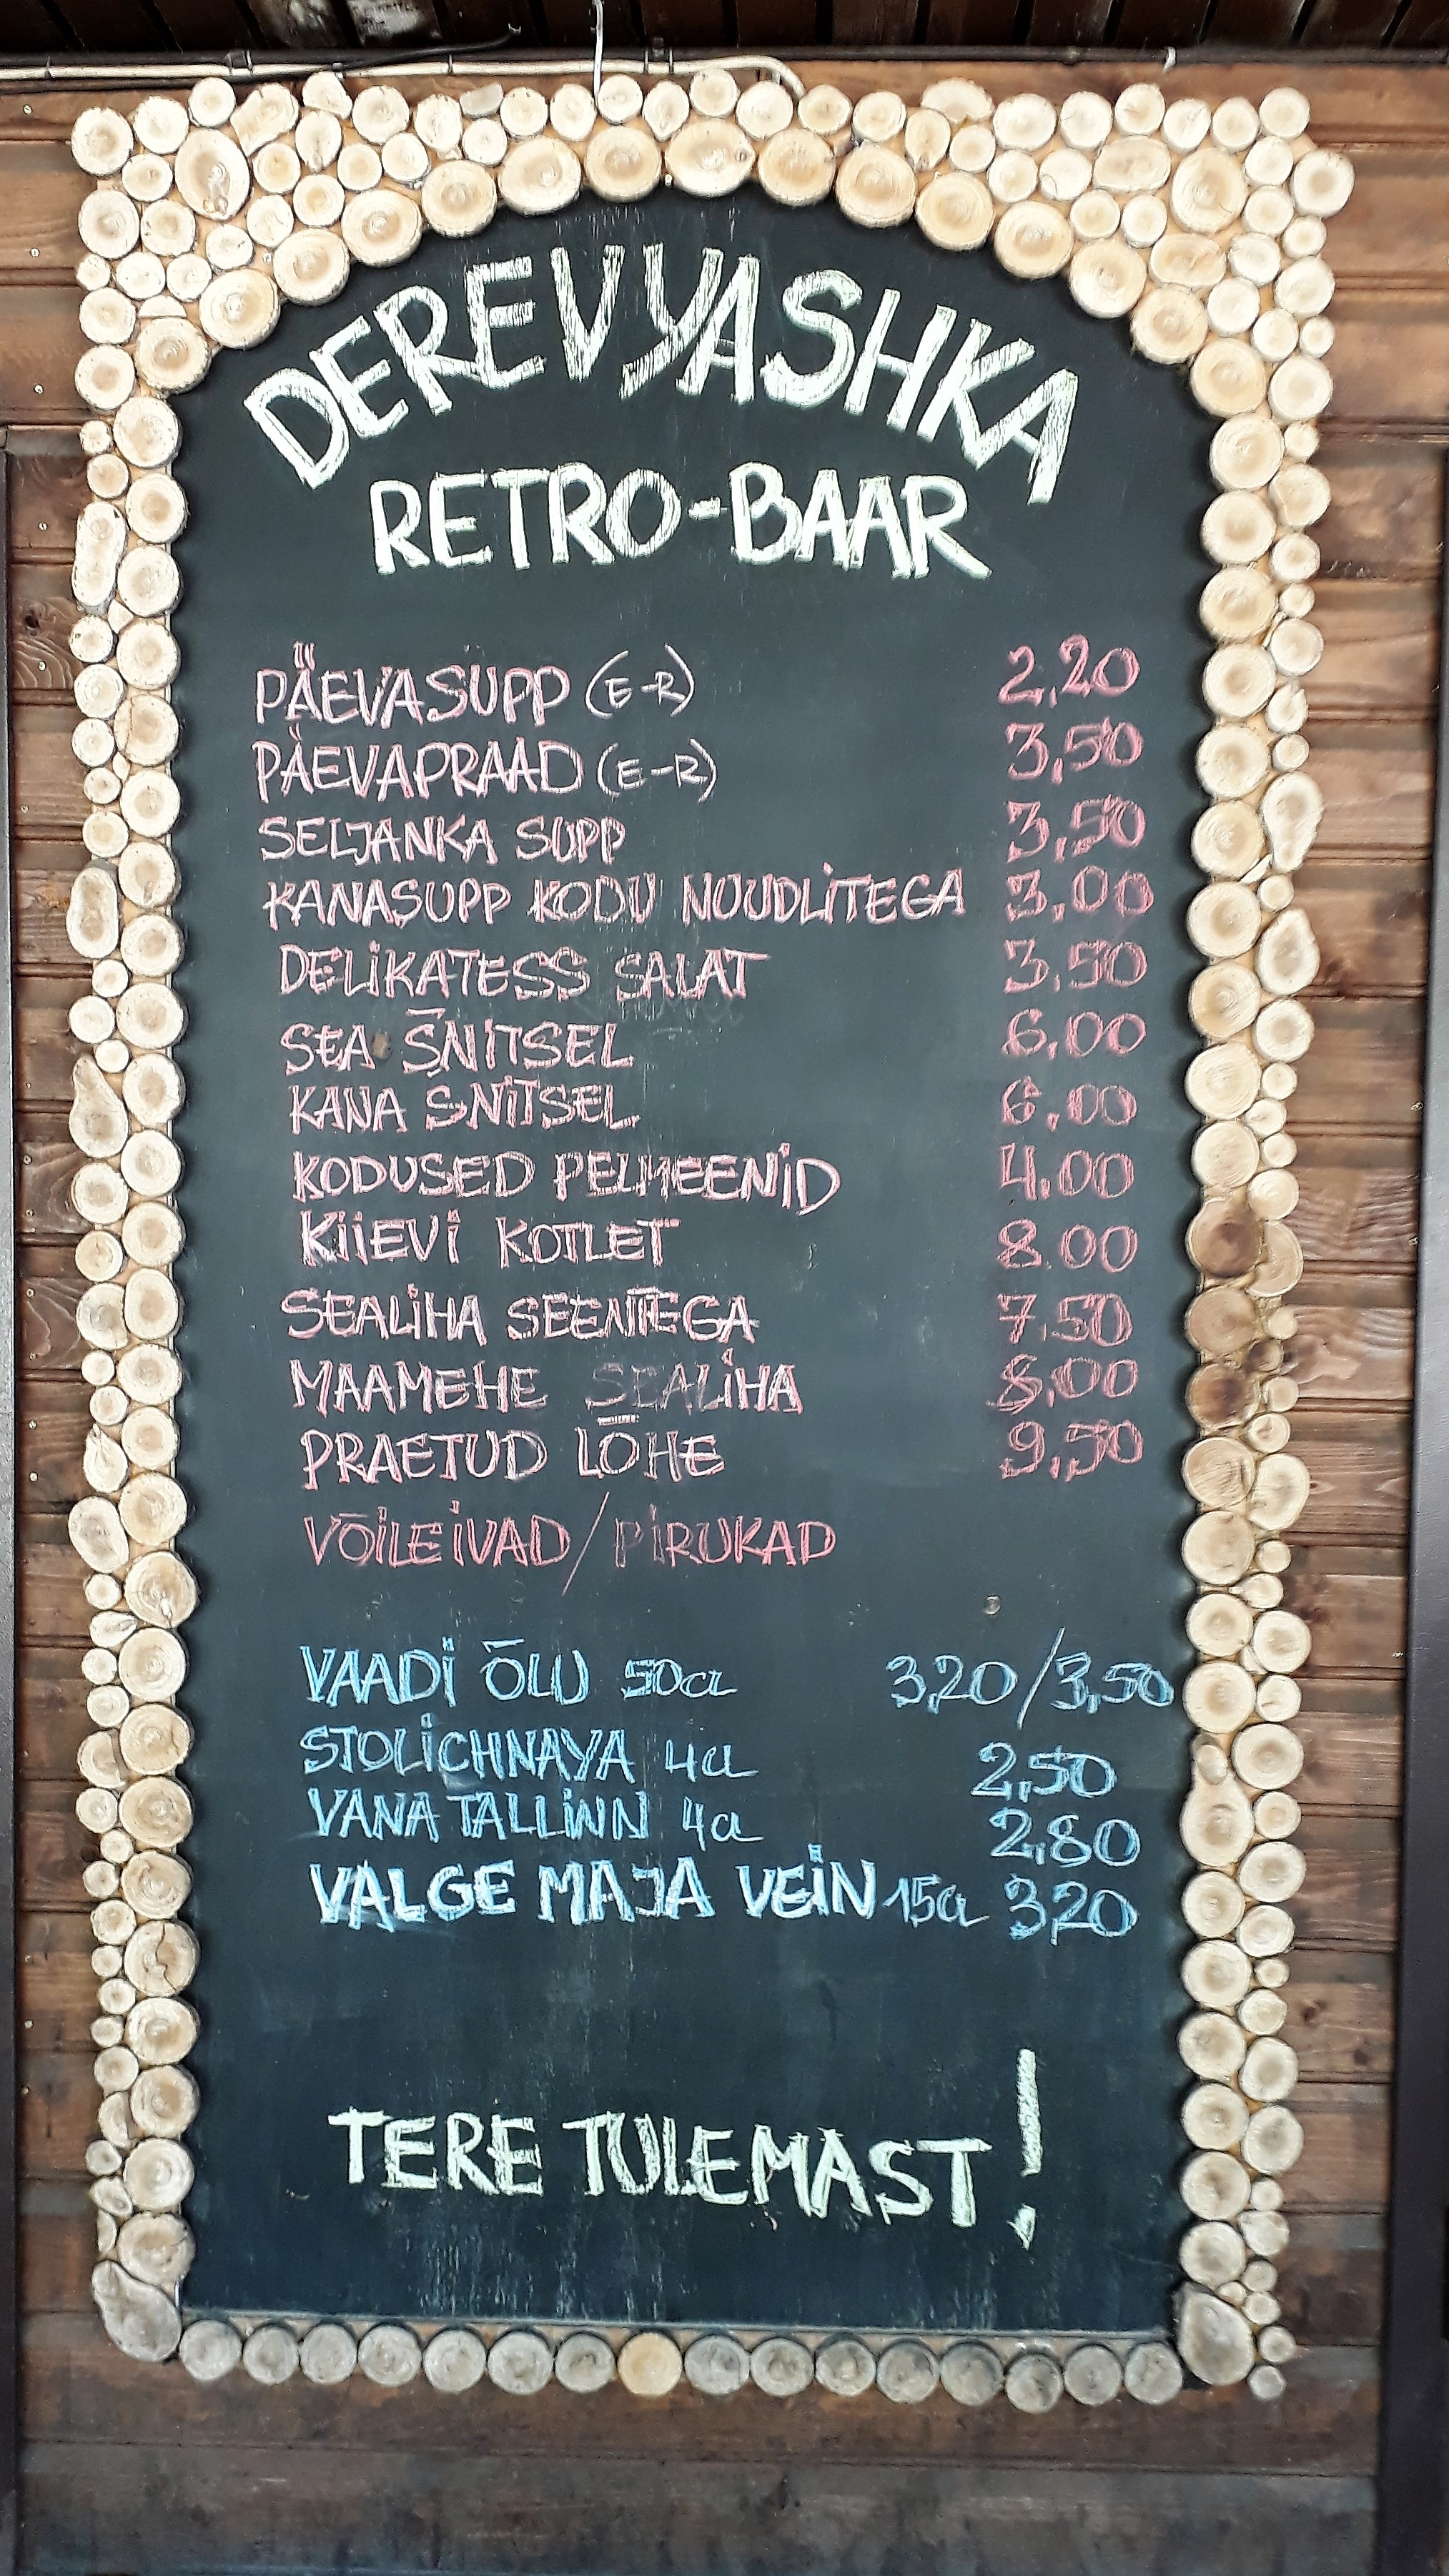 DEREVYASHKA
RETRO-BAAR
PÄEVASUPP (E-R) 2,20
PÄEVAPRAAD (E-R) 3,50
SELJANKA SUPP 3,50
KANASUPP KODU NUUDLITEGA 3,00
DELIKATESS SALAT 3,50
SEA ŠNITSEL 6,00
KANA ŠNITSEL 6,00
KODUSED PELMEENID 4.00
KIIEVI KOTLET 8.00
SEALIHA SEENTEGA 7.50
MAAMEHE SEALIHA 8,00
PRAETUD LÕHE 9,50
VÕILEIVAD/PIRUKAD
VAADI ÕLU 50CL 3,20/3,50
STOLICHNAYA 4CL 2,50
VANA TALLINN 4CL 2,80
VALGE MAJA VEIN 15CL 3,20
TERE TULEMAST!